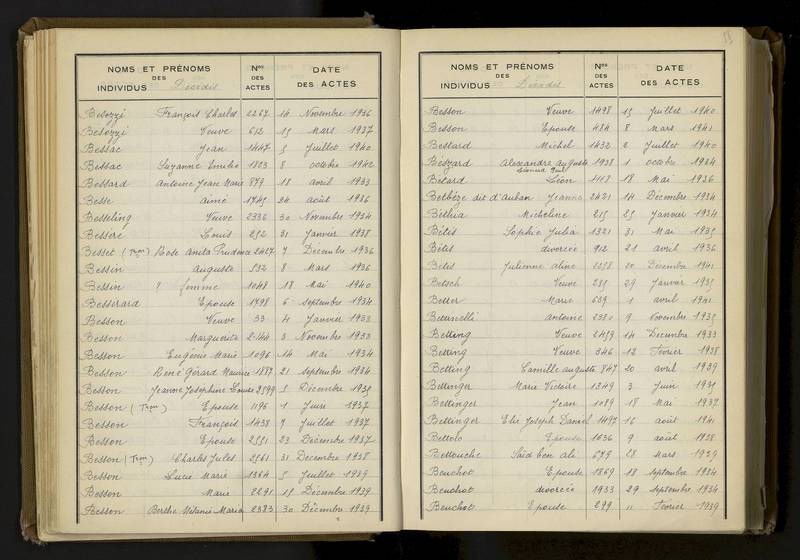 NOMS ET PRÉNOMS DES INDIVIDUS Décédés Nos DES ACTES DATE DES ACTES
Besozzi François Charles 2267 14 Novembre 1936
Besozzi Veuve 612 15 Mars 1937
Bessac Jean 1447 5 Juillet 1940
Bessac Suzanne Emilie 1823 8 octobre 1942
Bessard Antoine Jean Marie 879 18 avril 1933
Besse aimé 1745 24 août 1936
Besseling Veuve 2336 30 Novembre 1934
Bessere Louis 252 31 Janvier 1938
Besset (Tron) Rose Anita Prudence 2427 7 Décembre 1936
Bessin auguste 532 8 Mars 1936
Bessin ? femme 1048 18 Mai 1940
Bessirard Epouse 1798 6 Septembre 1934
Besson Veuve 33 4 Janvier 1933
Besson Marguerite 2144 3 Novembre 1933
Besson Eugénie Marie 1096 14 Mai 1934
Besson René Gérard Maurice 1887 21 Septembre 1934
Besson Jeanne Joséphine Louise 2599 5 Décembre 1935
Besson (Tron) Epouse 1196 1 Juin 1937
Besson François 1438 9 Juillet 1937
Besson Epouse 2551 23 Décembre 1937
Besson (Tron) Charles Jules 2561 31 Décembre 1938
Besson Lucie Marie 1364 5 Juillet 1939
Besson Marie 2291 15 Décembre 1939
Besson Berthe Mélanie Maria 2383 30 Décembre 1939
NOMS ET PRÉNOMS DES INDIVIDUS Décédés Nos DES ACTES DATE DES ACTES
Besson Veuve 1498 15 Juillet 1940
Besson Epouse 484 8 Mars 1941
Bestard Michel 1432 2 Juillet 1940
Alexandre auguste 1938 1 octobre 1934
Bétard Léon 1118 18 Mai 1936
Bethèze dit d'Auban Jeanne 2421 14 Décembre 1934
Béthia Micheline 215 25 Janvier 1934
Bétis Sophie Julia 1321 31 Mai 1935
Bétis divorcée 912 21 avril 1936
Bétis Julienne aline 2258 20 Décembre 1941
Betsch Veuve 235 29 Janvier 1935
Better Marie 639 1 avril 1941
Bettinelli antoine 2380 9 Novembre 1935
Betting Veuve 2459 14 Décembre 1933
Betting Veuve 346 12 Fevrier 1938
Betting Camille auguste 847 20 avril 1939
Bettinger Marie Victoire 1349 3 Juin 1935
Bettinger Jean 1089 18 Mai 1937
Bettinger Elie Joseph Daniel 1497 16 août 1941
Bettolo Epouse 1636 9 août 1938
Bettouche Said ben ali 699 28 Mars 1939
Beuchot Epouse 1869 18 septembre 1934
Beuchot divorcée 1933 29 septembre 1934
Beuchot Epouse 299 11 Fevrier 1939